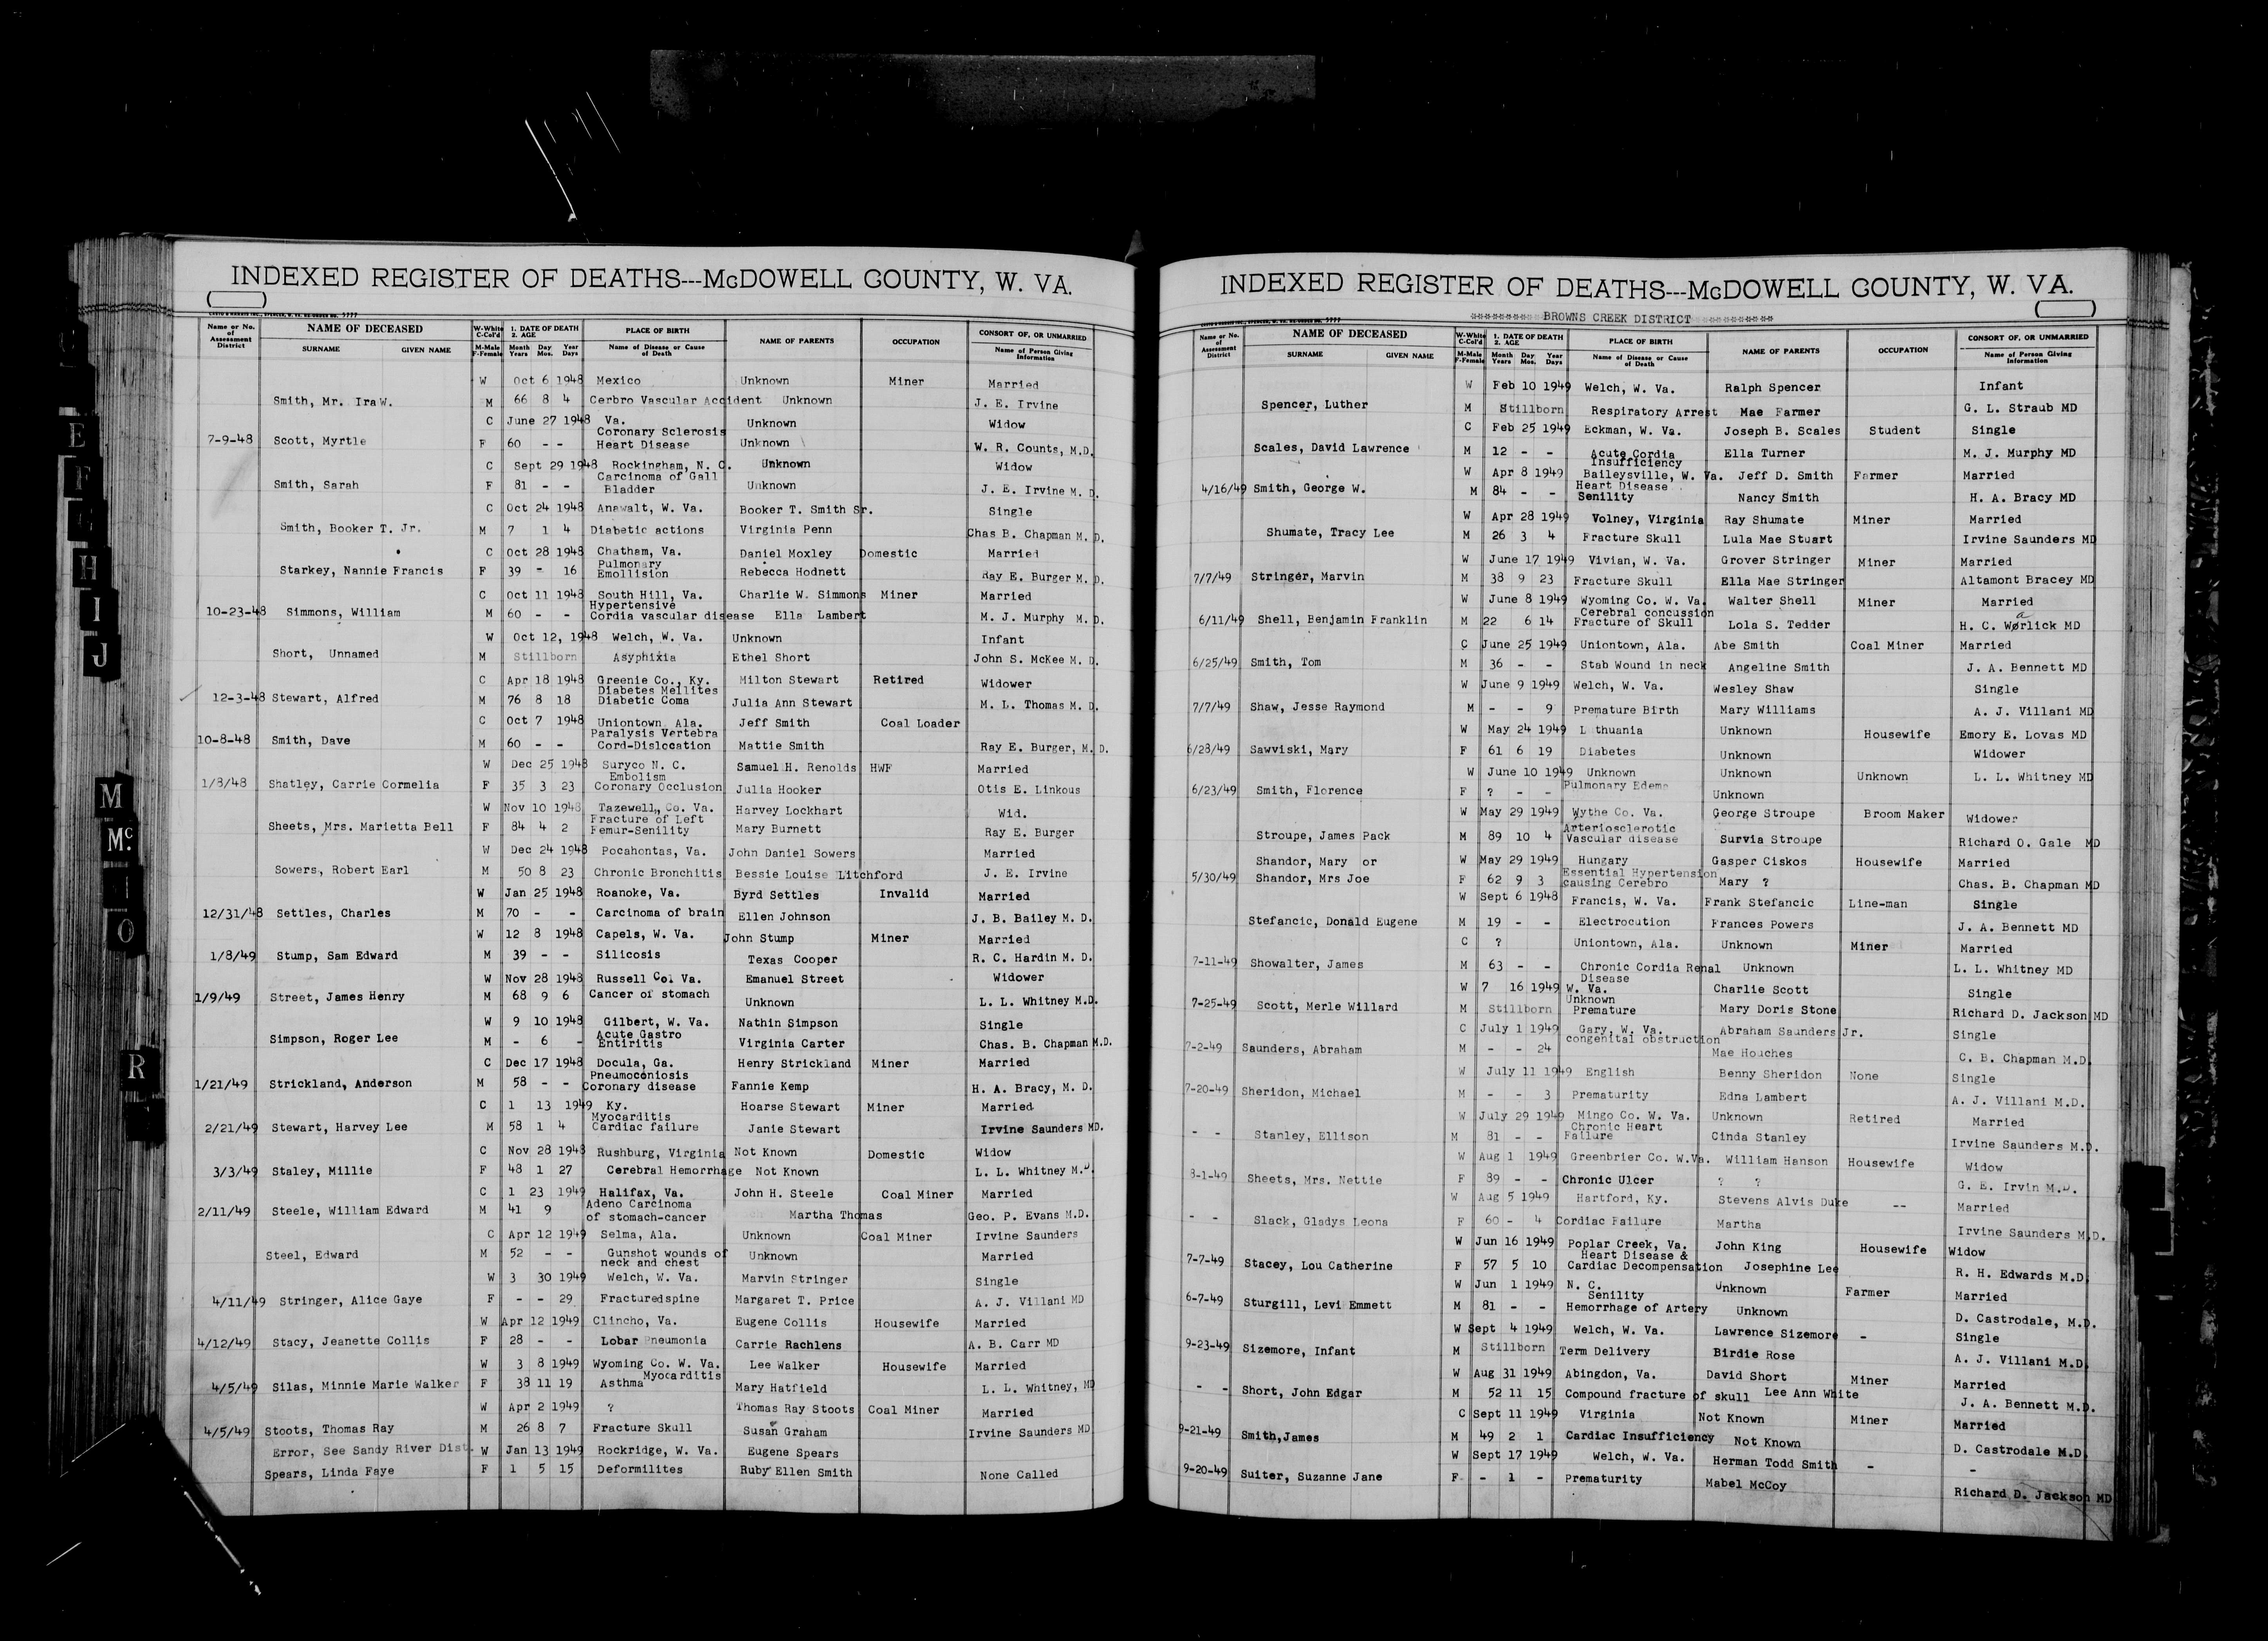 INDEXED REGISTER OF DEATHS---McDOWELL COUNTY, W. VA.
Name or No. of Assessment District NAME OF DECEASED SURNAME GIVEN NAME W-White C-Col'd M-Male F-Female 1. DATE OF DEATH 2. AGE Month Day Year Years Mos. Days PLACE OF BIRTH Name of Disease or Cause of Death NAME OF PARENTS OCCUPATION CONSORT OF, OR UNMARRIED Name of Person Giving Information
W Oct 6 1948 Mexico Unknown Miner Married
Smith, Mr. Ira W. M 66 8 4 Cerbro Vascular Accident Unknown J. E. Irvine
C June 27 1948 Va. Unknown Widow
7-9-48 Scott, Myrtle F 60 - - Coronary Sclerosis Heart Disease Unknown W. R. Counts, M.D.
C Sept 29 1948 Rockingham, N. C. Unknown Widow
Smith, Sarah F 81 - - Carcinoma of Gall Bladder Unknown J. E. Irvine M. D.
C Oct 24 1948 Anawalt, W. Va. Booker T. Smith Sr. Single
Smith, Booker T. Jr. M 7 1 4 Diabetic actions Virginia Penn Chas B. Chapman M. D.
C Oct 28 1948 Chatham, Va. Daniel Moxley Domestic Married
Starkey, Nannie Francis F 39 - 16 Pulmonary Emollision Rebecca Hodnett Ray E. Burger M. D.
C Oct 11 1948 South Hill, Va. Charlie W. Simmons Miner Married
10-23-48 Simmons, William M 60 - - Hypertensive Cordia vascular disease Ella Lambert M. J. Murphy M. D.
W Oct 12, 1948 Welch, W. Va. Unknown Infant
Short, Unnamed M Stillborn Asyphixia Ethel Short John S. McKee M. D.
C Apr 18 1948 Greenie Co., Ky. Milton Stewart Retired Widower
12-3-48 Stewart, Alfred M 76 8 18 Diabetes Mellites Diabetic Coma Julia Ann Stewart M. L. Thomas M. D.
C Oct 7 1948 Uniontown Ala. Jeff Smith Coal Loader
10-8-48 Smith, Dave M 60 - - Paralysis Vertebra Cord-Dislocation Mattie Smith Ray E. Burger, M. D.
W Dec 25 1948 Suryco N. C. Samuel H. Renolds HWF Married
1/8/48 Shatley, Carrie Cormelia F 35 3 23 Embolism Coronary Occlusion Julia Hooker Otis E. Linkous
W Nov 10 1948 Tazewell, Co. Va. Harvey Lockhart Wid.
Sheets, Mrs. Marietta Bell F 84 4 2 Fracture of Left Femur-Senility Mary Burnett Ray E. Burger
W Dec 24 1948 Pocahontas, Va. John Daniel Sowers Married
Sowers, Robert Earl M 50 8 23 Chronic Bronchitis Bessie Louise Litchford J. E. Irvine
W Jan 25 1948 Roanoke, Va. Byrd Settles Invalid Married
12/31/48 Settles, Charles M 70 - - Carcinoma of brain Ellen Johnson J. B. Bailey M. D.
W 12 8 1948 Capels, W. Va. John Stump Miner Married
1/8/49 Stump, Sam Edward M 39 - - Silicosis Texas Cooper R. C. Hardin M. D.
W Nov 28 1948 Russell Co. Va. Emanuel Street Widower
1/9/49 Street, James Henry M 68 9 6 Cancer of stomach Unknown L. L. Whitney M.D.
W 9 10 1948 Gilbert, W. Va. Nathin Simpson Single
Simpson, Roger Lee M - 6 - Acute Gastro Entiritis Virginia Carter Chas. B. Chapman M.D.
C Dec 17 1948 Docula, Ga. Henry Strickland Miner Married
1/21/49 Strickland, Anderson M 58 - - Pneumoconiosis Coronary disease Fannie Kemp H. A. Bracy, M. D.
C 1 13 1949 Ky. Hoarse Stewart Miner Married
2/21/49 Stewart, Harvey Lee M 58 1 4 Myocarditis Cardiac failure Janie Stewart Irvine Saunders MD.
C Nov 28 1948 Rushburg, Virginia Not Known Domestic Widow
3/3/49 Staley, Millie F 48 1 27 Cerebral Hemorrhage Not Known L. L. Whitney M.D.
C 1 23 1949 Halifax, Va. John H. Steele Coal Miner Married
2/11/49 Steele, William Edward M 41 9 Adeno Carcinoma of stomach-cancer Martha Thomas Geo. P. Evans M.D.
C Apr 12 1949 Selma, Ala. Unknown Coal Miner Irvine Saunders
Steel, Edward M 52 - - Gunshot wounds of neck and chest Unknown Married
W 3 30 1949 Welch, W. Va. Marvin Stringer Single
4/11/49 Stringer, Alice Gaye F - - 29 Fractured spine Margaret T. Price A. J. Villani MD
W Apr 12 1949 Clincho, Va. Eugene Collis Housewife Married
4/12/49 Stacy, Jeanette Collis F 28 - - Lobar Pneumonia Carrie Rachlens A. B. Carr MD
W 3 8 1949 Wyoming Co. W. Va. Lee Walker Housewife Married
4/5/49 Silas, Minnie Marie Walker F 38 11 19 Myocarditis Asthma Mary Hatfield L. L. Whitney, MD
W Apr 2 1949 ? Thomas Ray Stoots Coal Miner Married
4/5/49 Stoots, Thomas Ray M 26 8 7 Fracture Skull Susan Graham Irvine Saunders MD
Error, See Sandy River Dist. W Jan 13 1949 Rockridge, W. Va. Eugene Spears
Spears, Linda Faye F 1 5 15 Deformilites Ruby Ellen Smith None Called
INDEXED REGISTER OF DEATHS---McDOWELL COUNTY, W. VA.
********* BROWNS CREEK DISTRICT ************
Name or No. of Assessment District NAME OF DECEASED SURNAME GIVEN NAME W-White C-Col'd M-Male F-Female 1. DATE OF DEATH 2. AGE Month Day Year Years Mos. Days PLACE OF BIRTH Name of Disease or Cause of Death NAME OF PARENTS OCCUPATION CONSORT OF, OR UNMARRIED Name of Person Giving Information
W Feb 10 1949 Welch, W. Va. Ralph Spencer Infant
Spencer, Luther M Stillborn Respiratory Arrest Mae Farmer G. L. Straub MD
C Feb 25 1949 Eckman, W. Va. Joseph B. Scales Student Single
Scales, David Lawrence M 12 - - Acute Cordia Insufficiency Ella Turner M. J. Murphy MD
W Apr 8 1949 Baileysville, W. Va. Jeff D. Smith Farmer Married
4/16/49 Smith, George W. M 84 - - Heart Disease Senility Nancy Smith H. A. Bracy MD
W Apr 28 1949 Volney, Virginia Ray Shumate Miner Married
Shumate, Tracy Lee M 26 3 4 Fracture Skull Lula Mae Stuart Irvine Saunders MD
W June 17 1949 Vivian, W. Va. Grover Stringer Miner Married
7/7/49 Stringer, Marvin M 38 9 23 Fracture Skull Ella Mae Stringer Altamont Bracey MD
W June 8 1949 Wyoming Co. W. Va. Walter Shell Miner Married
6/11/49 Shell, Benjamin Franklin M 22 6 14 Cerebral concussion Fracture of Skull Lola S. Tedder H. C. Warlick MD
C June 25 1949 Uniontown, Ala. Abe Smith Coal Miner Married
6/25/49 Smith, Tom M 36 - - Stab Wound in neck Angeline Smith J. A. Bennett MD
W June 9 1949 Welch, W. Va. Wesley Shaw Single
7/7/49 Shaw, Jesse Raymond M - - 9 Premature Birth Mary Williams A. J. Villani MD
W May 24 1949 L thuania Unknown Housewife Emory E. Lovas MD
6/28/49 Sawviski, Mary F 61 6 19 Diabetes Unknown Widower
W June 10 1949 Unknown Unknown Unknown L. L. Whitney MD
6/23/49 Smith, Florence F ? - - Pulmonary Edema Unknown
W May 29 1949 Wythe Co. Va. George Stroupe Broom Maker Widower
Stroupe, James Pack M 89 10 4 Arteriosclerotic Vascular disease Survia Stroupe Richard O. Gale MD
Shandor, Mary or W May 29 1949 Hungary Gasper Ciskos Housewife Married
5/30/49 Shandor, Mrs Joe F 62 9 3 Essential Hypertension causing Cerebro Mary ? Chas. B. Chapman MD
W Sept 6 1948 Francis, W. Va. Frank Stefancic Line-man Single
Stefancic, Donald Eugene M 19 - - Electrocution Frances Powers J. A. Bennett MD
C ? Uniontown, Ala. Unknown Miner Married
7-11-49 Showalter, James M 63 - - Chronic Cordia Renal Disease Unknown L. L. Whitney MD
W 7 16 1949 W. Va. Charlie Scott Single
7-25-49 Scott, Merle Willard M Stillborn Unknown Premature Mary Doris Stone Richard D. Jackson MD
C July 1 1949 Gary, W. Va. Abraham Saunders Jr. Single
7-2-49 Saunders, Abraham M - - 24 congenital obstruction Mae Houches C. B. Chapman M.D.
W July 11 1949 English Benny Sheridon None Single
7-20-49 Sheridon, Michael M - - 3 Prematurity Edna Lambert A. J. Villani M.D.
W July 29 1949 Mingo Co. W. Va. Unknown Retired Married
- - Stanley, Ellison M 81 - - Chronic Heart Failure Cinda Stanley Irvine Saunders M.D.
W Aug 1 1949 Greenbrier Co. W.Va. William Hanson Housewife Widow
8-1-49 Sheets, Mrs. Nettie F 89 - - Chronic Ulcer ? ? G. E. Irvin M.D.
W Aug 5 1949 Hartford, Ky. Stevens Alvis Duke -- Married
- - Slack, Gladys Leona F 60 - 4 Cordiac Failure Martha Irvine Saunders M.D.
W Jun 16 1949 Poplar Creek, Va. John King Housewife Widow
7-7-49 Stacey, Lou Catherine F 57 5 10 Heart Disease & Cardiac Decompensation Josephine Lee R. H. Edwards M.D.
W Jun 1 1949 N. C. Unknown Farmer Married
6-7-49 Sturgill, Levi Emmett M 81 - - Senility Hemorrhage of Artery Unknown D. Castrodale, M.D.
W Sept 4 1949 Welch, W. Va. Lawrence Sizemore - Single
9-23-49 Sizemore, Infant M Stillborn Term Delivery Birdie Rose A. J. Villani M.D.
W Aug 31 1949 Abingdon, Va. David Short Miner Married
- - Short, John Edgar M 52 11 15 Compound fracture of skull Lee Ann White J. A. Bennett M.D.
C Sept 11 1949 Virginia Not Known Miner Married
9-21-49 Smith,James M 49 2 1 Cardiac Insufficiency Not Known D. Castrodale M.D.
W Sept 17 1949 Welch, W. Va. Herman Todd Smith - -
9-20-49 Suiter, Suzanne Jane F - 1 - Prematurity Mabel McCoy Richard D. Jackson MD
E
F
H
I
J
M
Mc
O
R